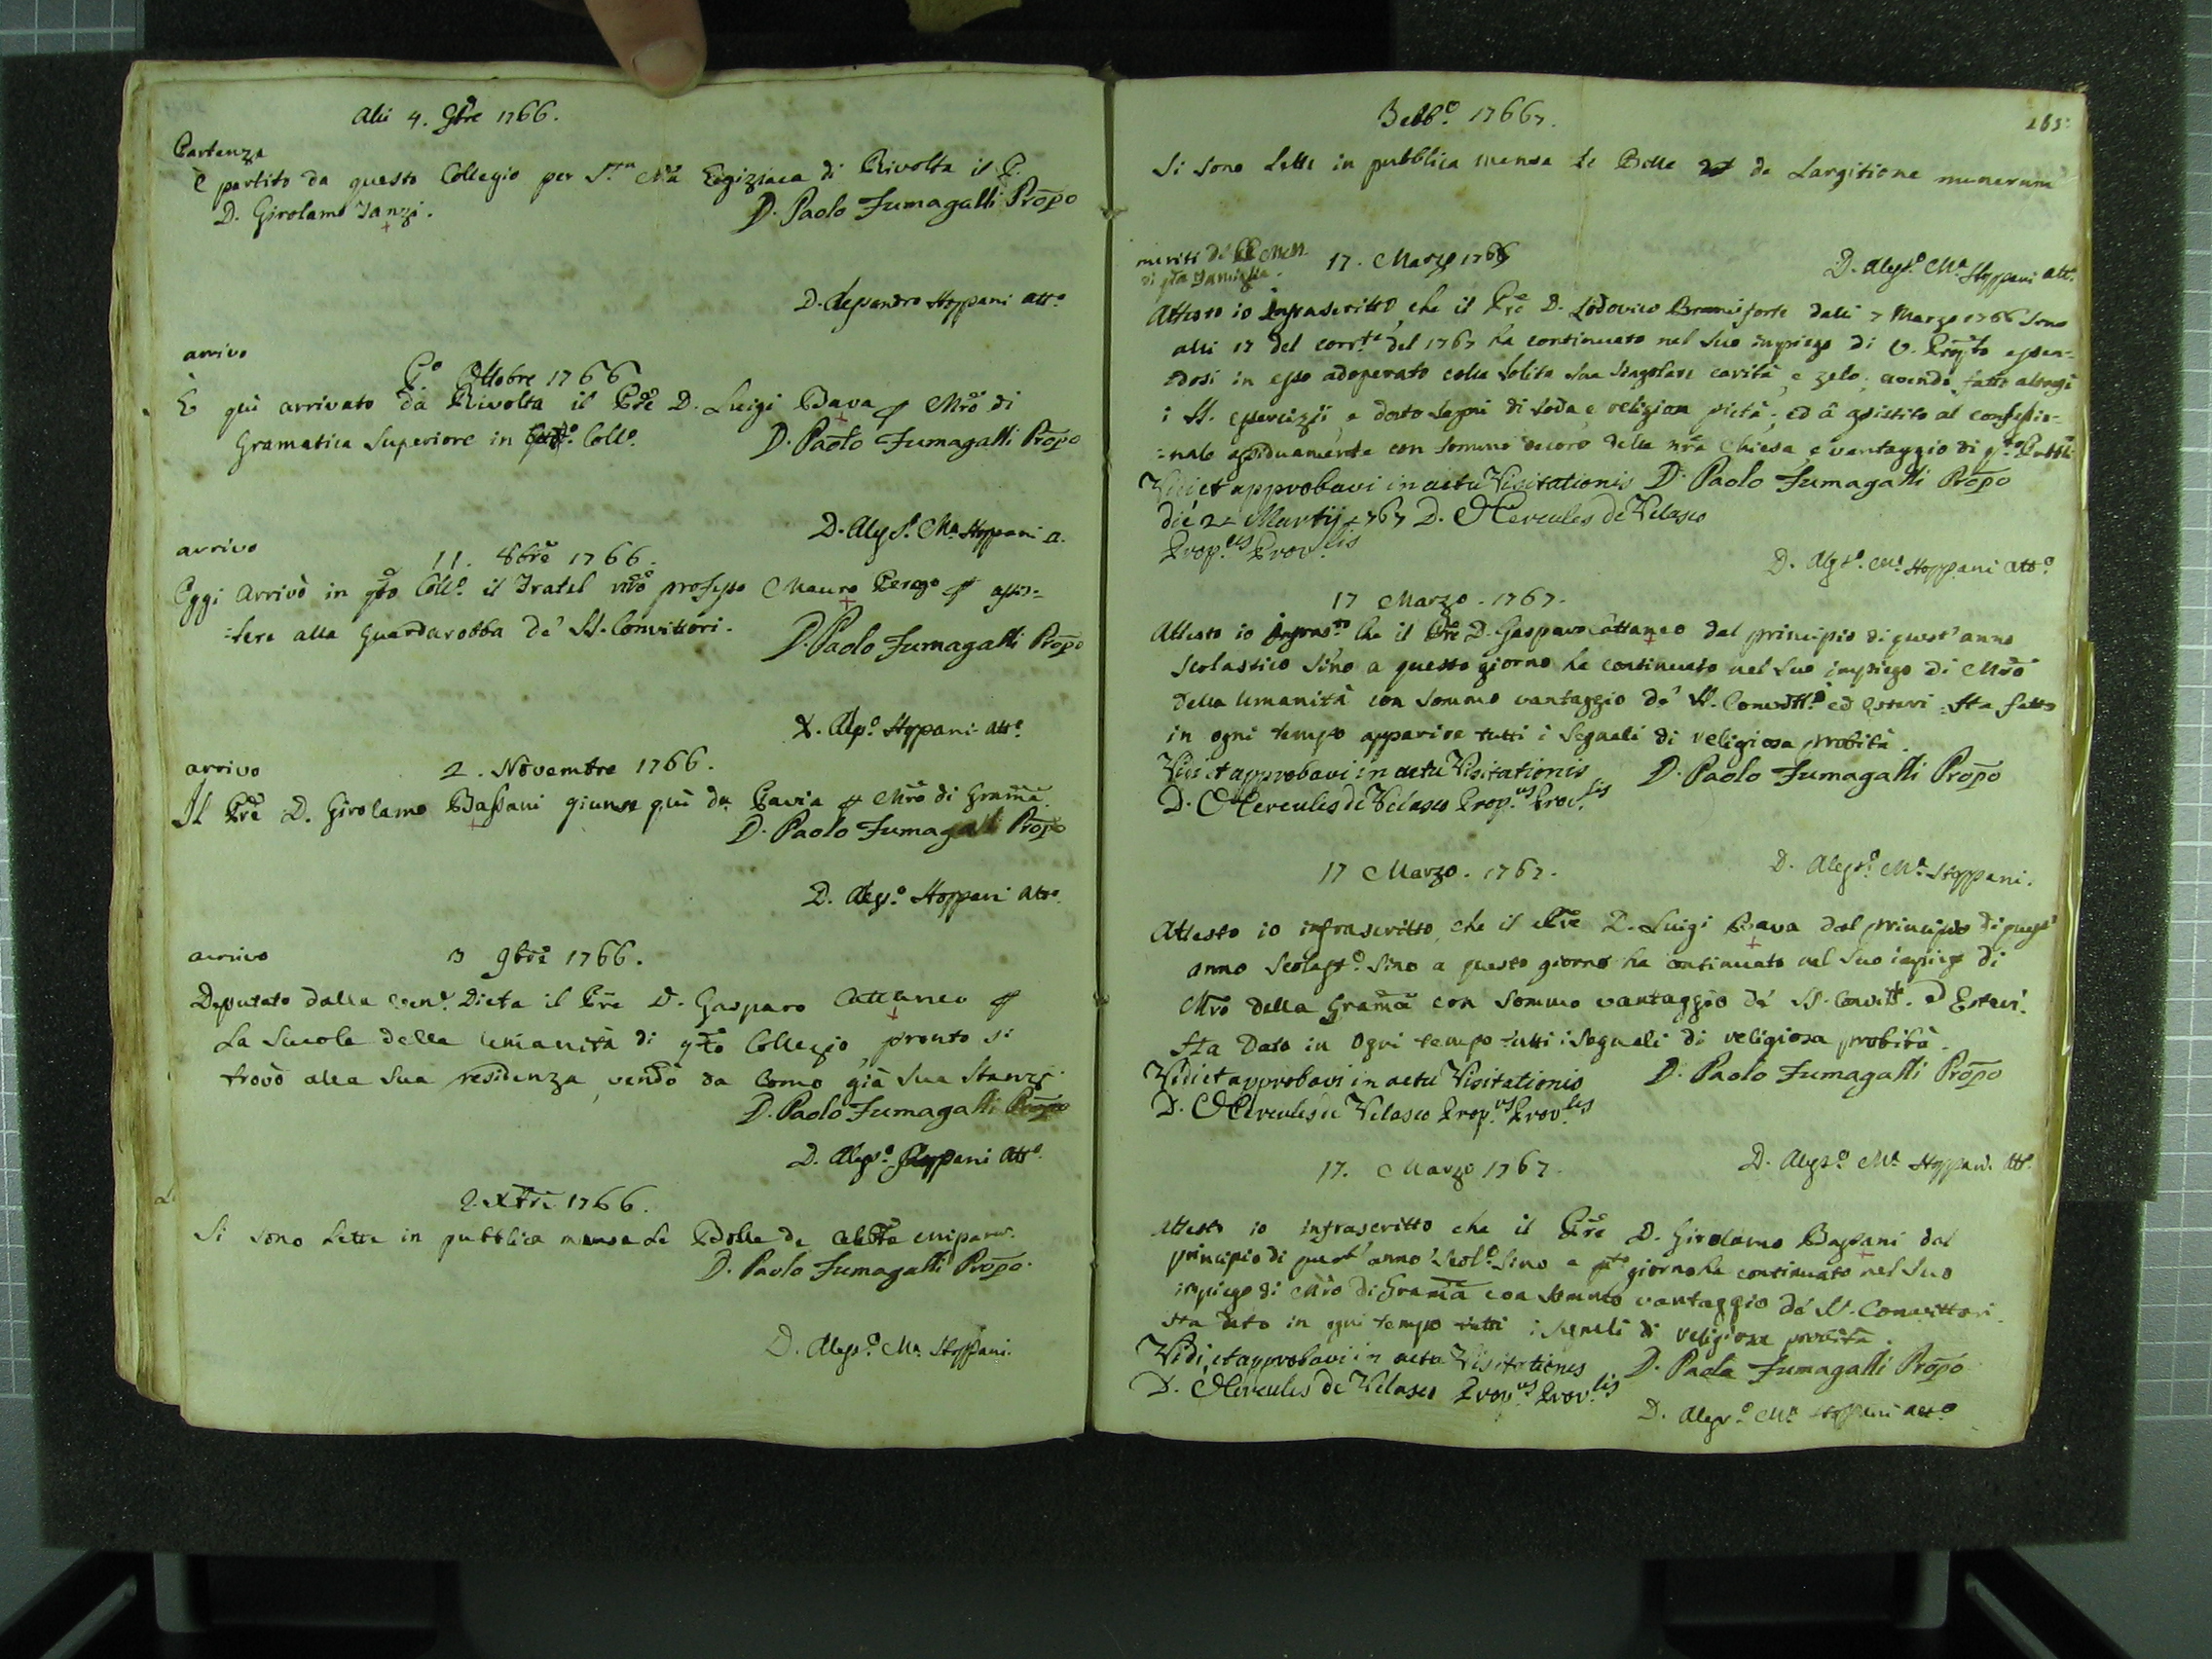 Alli 4. 9bre 1766.
Partenza
È partito da questo Collegio per S.ta Mia Egiziaca di Rivolta il P.
D. Girolamo Tanzi.
D. Paolo Fumagalli Propo
D. Alessandro Stoppani Att.o
arrivo
P.o Ottobre 1766
È qui arrivato da Rivolta il Pre D. Luigi Bava p Mro di
Gramatica Superiore in Coll.o
D. Paolo Fumagalli Propo
D. Aless. Ma Stoppani a.
arrivo
11. 8bre 1766.
Oggi Arrivò in qto Coll.o il Fratel professo Mauro Perego p assis=
=tere alla Guardarobba de' SS. Convittori.
D. Paolo Fumagalli Propo
Aless.o Stoppani Att.o
arrivo
2. Novembre 1766.
Il Pre D. Girolamo Bassani giunse quì da Pavia p Mro di Grama.
D. Paolo Fumagalli Propo
D. Aless.o Stoppani Atto.
arrivo
3 9bre 1766.
Deputato dalla Ven. Dieta il Pre D. Gasparo Cattaneo p
La Scuola della Umanità di qto Collegio, pronto si
trovò alla sua residenza, vendo da Como già sua Stanza.
D. Paolo Fumagalli Propo
D. Aless.o Stoppani Att.o
2. Xbre 1766.
Si sono Lette in pubblica mensa Le Bolle de
D. Paolo Fumagalli Propo.
D. Aless.o Ma Stoppani.
265.
Febb.o 1767.
Si sono Lette in pubblica mensa Le Bolle de Largitione munerum
D. Aless.o Ma Stoppani Att.
meriti de'
di qta Famiglia.
17. Marzo 1767
Attesto io Infrascritto, che il Pre D. Lodovico Bramiforte dalli 7 Marzo 1766 sino
alli 17 del corr.te del 1767 ha continuato nel suo impiego di V. Prepto essen=
=dosi in esso adoperato colla solita sua singolare carità, e zelo, avendo fatti altresì
i SS. esercizii, e dato segni di soda, e religiosa pietà; ed à assistito al confessio=
=nale assiduamente con sommo decoro della nra Chiesa, e vantaggio di qto Pubbl.
D. Paolo Fumagalli Propo
Vidi et approbavi in actu Visitationis
die 2 Martij 1767 D. Hercules de Velasco
Prop.us Prov.lis
D. Aless.o Ma Stoppani Att.o
17 Marzo. 1767.
Attesto io Infras.to che il Pre D. Gasparo Cattaneo dal principio di quest' anno
scolastico sino a questo giorno ha continuato nel suo impiego di Mro
della Umanità con sommo vantaggio de' SS. Convitt.i ed Esteri. Ha fatto
in ogni tempo apparire tutti i segnali di religiosa probità.
D. Paolo Fumagalli Propo
Vidi et approbavi in actu Visitationis
D. Hercules de Velasco Prop.us Prov.lis
D. Aless.o Ma Stoppani.
17 Marzo. 1767.
Attesto io infrascritto, che il Pre D. Luigi Bava dal principio di quest'
anno scolast.o sino a questo giorno ha continuato nel suo impiego di
Mro della Grama con sommo vantaggio de' SS. Convitt. ed Esteri.
Ha Dato in Ogni tempo tutti i segnali di religiosa probità.
D. Paolo Fumagalli Propo
Vidi et approbavi in actu Visitationis
D. Hercules de Velasco Prop.us Prov.lis
D. Aless.o Ma Stoppani Att.
17. Marzo 1767.
Attesto io infrascritto che il Pre D. Girolamo Bassani dal
principio di quest' anno Scol.o sino a qto giorno ha continuato nel suo
impiego di Mro di Grama con sommo vantaggio de' SS. Convittori.
Ha dato in ogni tempo tutti i segnali di religiosa probità.
D. Paolo Fumagalli Propo
Vidi, et approbavi in actu Visitationis
D. Hercules de Velasco Prop.us Prov.lis
D. Aless.o Ma Stoppani Att.o